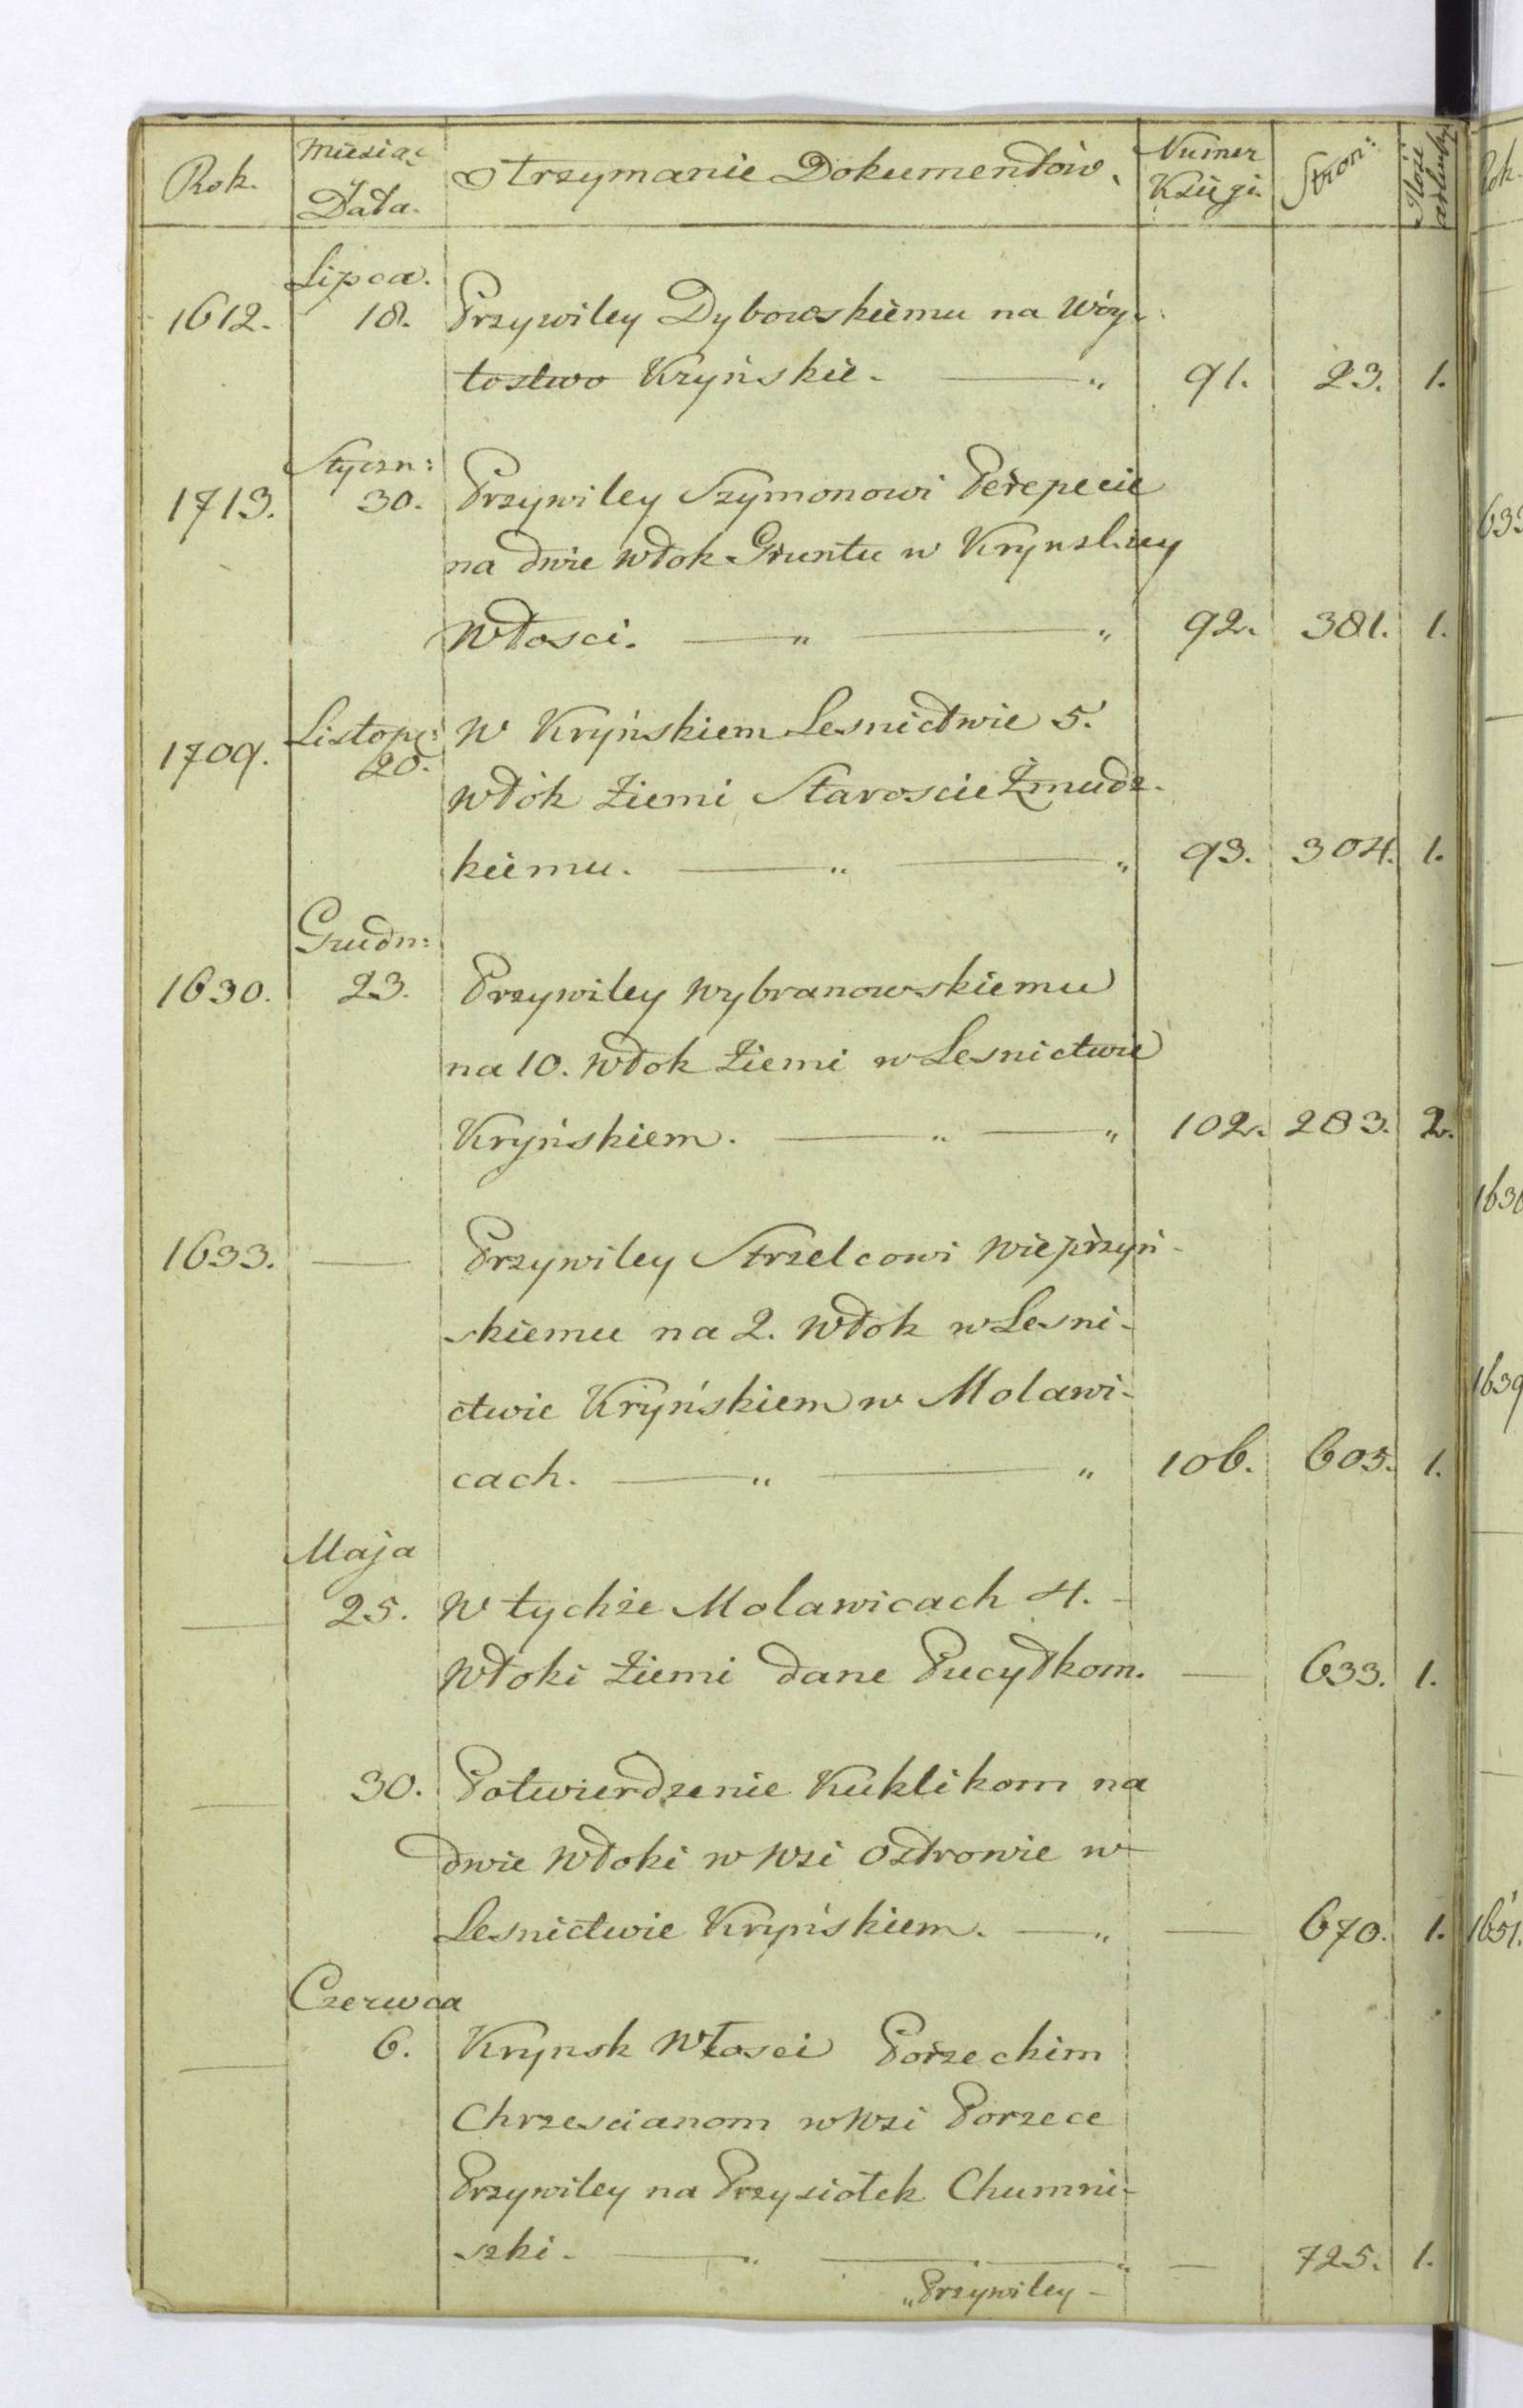 Rok. Miesiąc Data. Otrzymanie Dokumentów. Numer Księgi. Stron: Ilość arkuszy
Lipca.
1612. 18. Przywiley Dybowskiemu na Wóy-
tostwo Kryńskie. — „ 91. 23. 1.
Styczn:
1713. 30. Przywiley Szymonowi Perepecie
na dwie włok Gruntu w Krynskiey
Włosci. — „ — „ 92. 381. 1.
1709. Listop: W Kryńskiem Lesnictwie 5.
20.
włók Ziemi Staroscie Żmudz-
kiemu. — „ — „ 93. 304. 1.
Grudn:
1630. 23. Przywiley Wybranowskiemu
na 10. włok Ziemi w Lesnictwie
Kryńskiem. — „ — „ 102. 283. 2.
1633. — Przywiley Strzelcowi Wieprzyń-
skiemu na 2. włók w Lesni-
ctwie Kryńskiem w Molawi-
cach. — „ — „ 106. 605. 1.
Maja
— 25. W tychże Molawicach 4. -
Włoki Ziemi dane Pucyłkom. — 633. 1.
— 30. Potwierdzenie Kuklikom na
dwie włoki w Wsi Ostrowie w
Lesnictwie Kryńskiem. — „ — 670. 1.
Czerwca
— 6. Krynsk Włosci Porzeckim
Chrzescianom w Wsi Porzece
Przywiley na Przysiołek Chumni-
szki. — „ — „ — 725. 1.
„Przywiley -